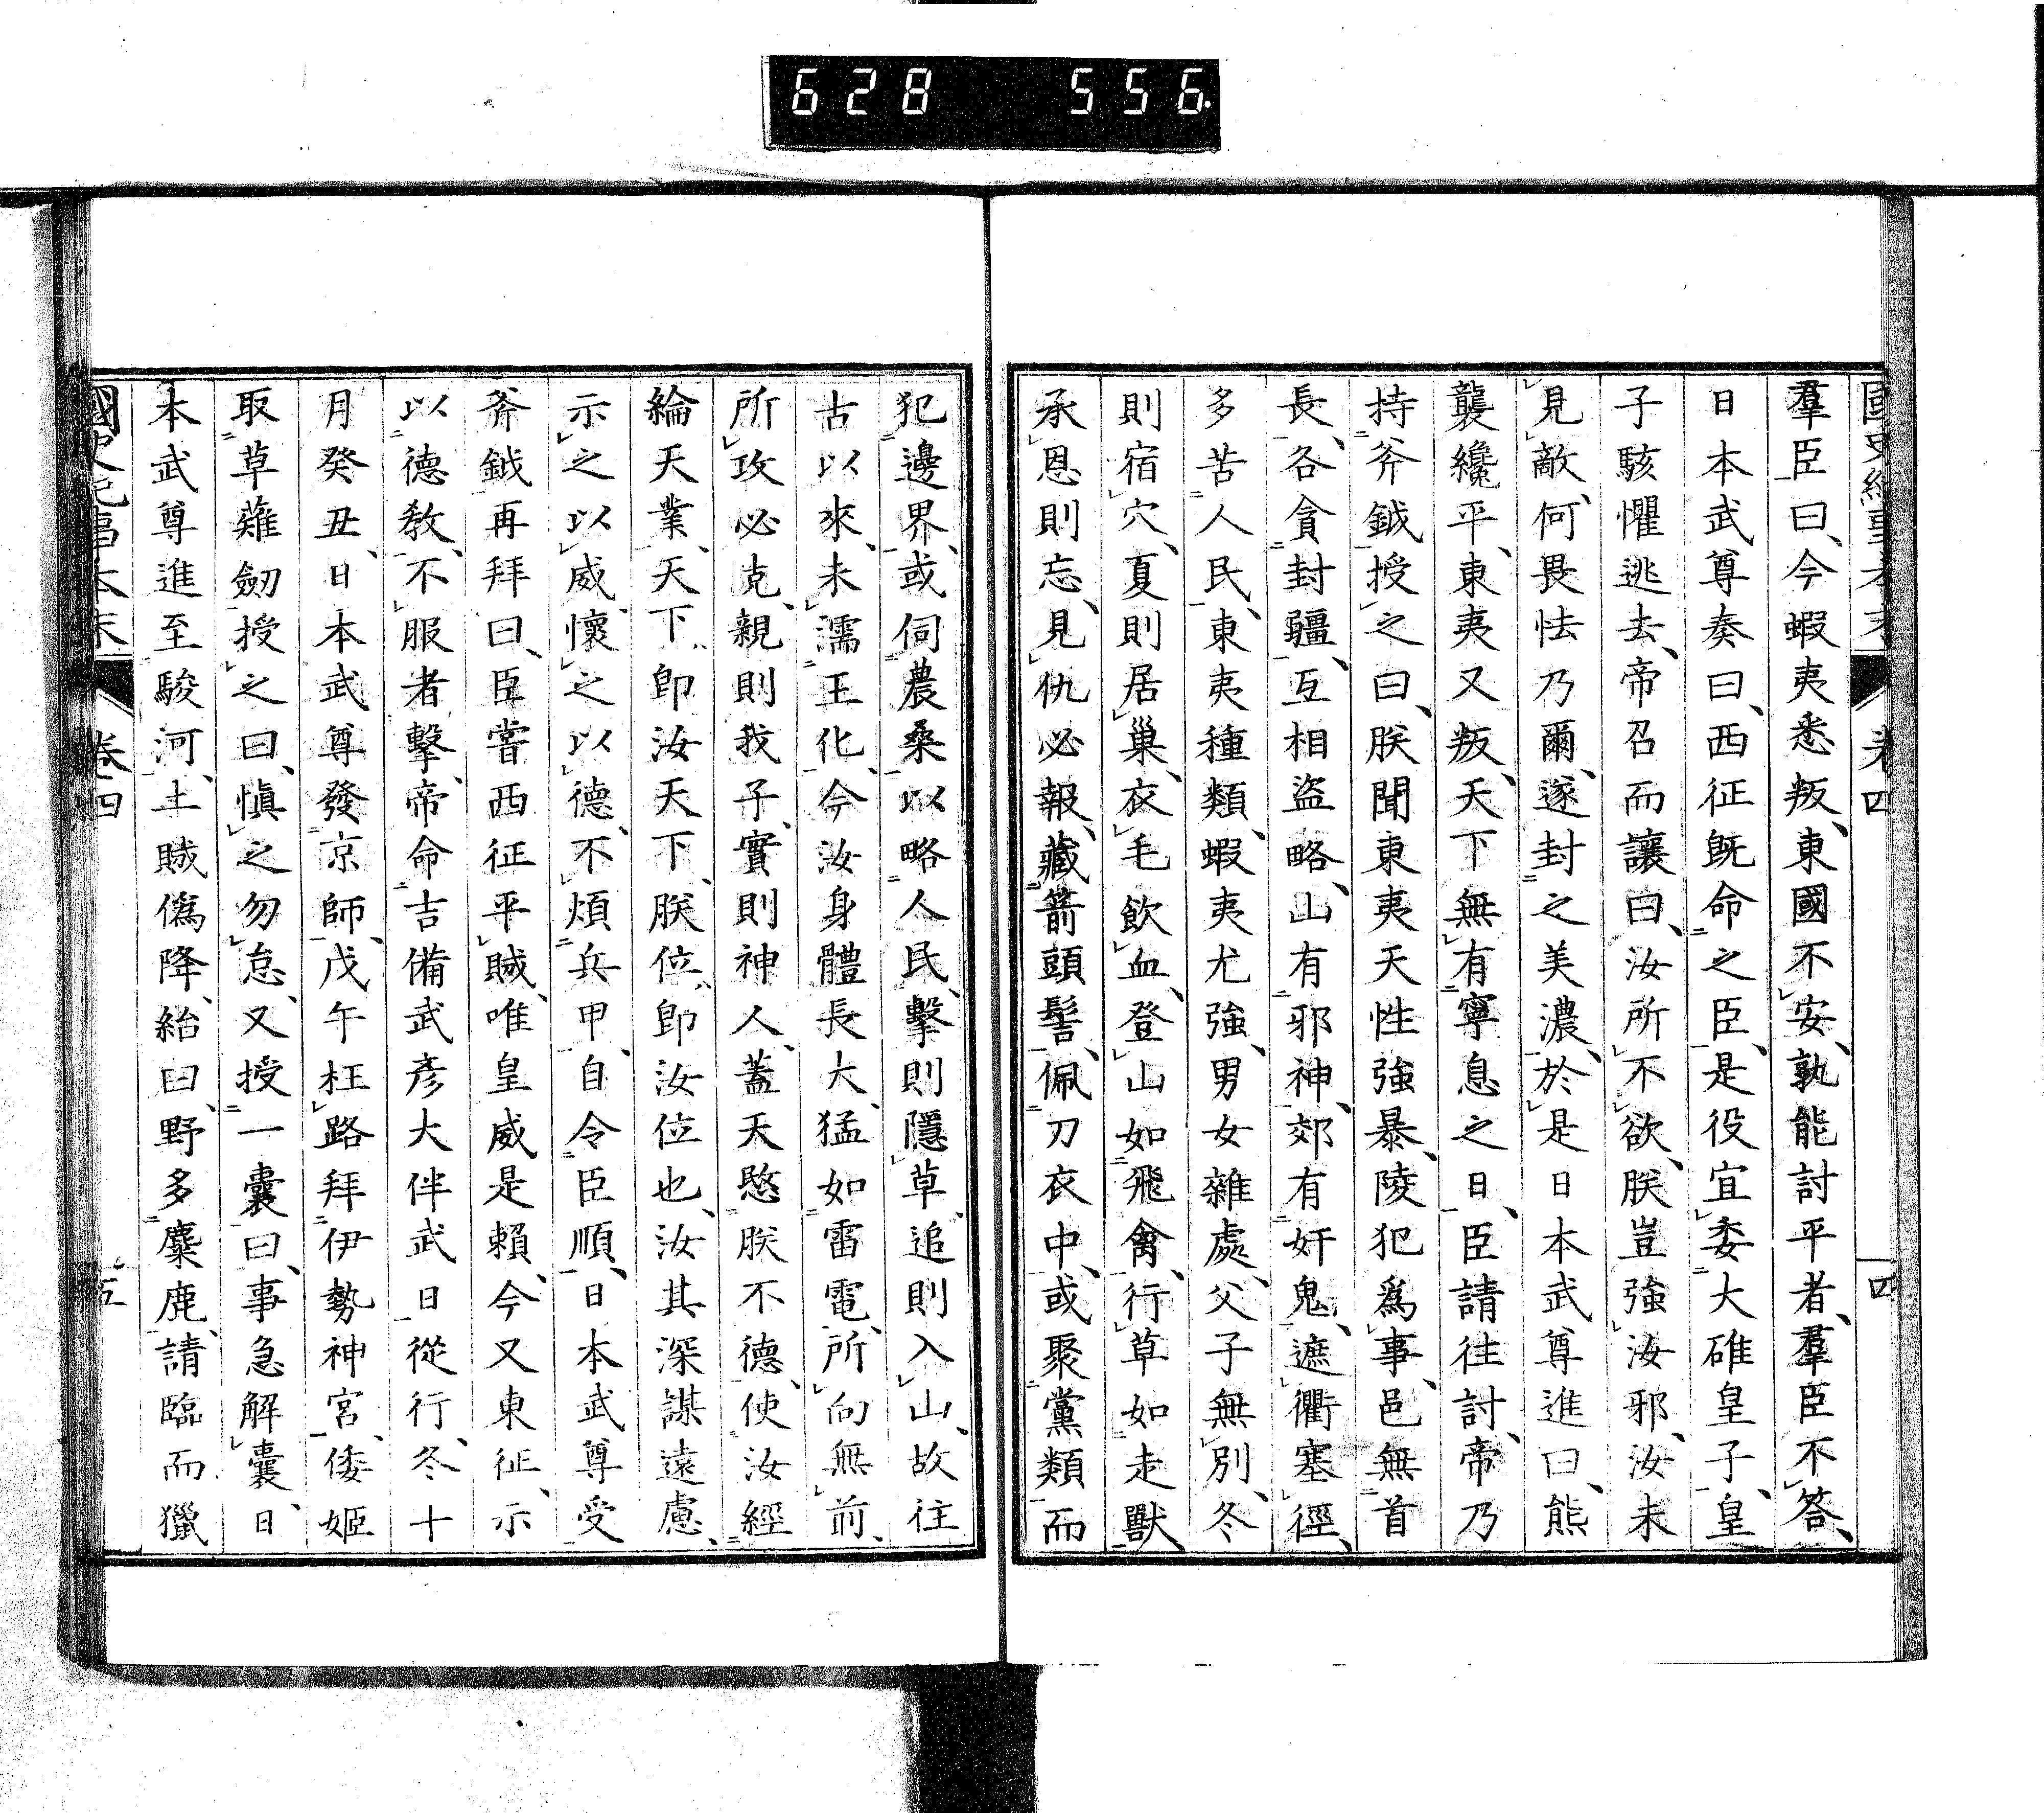 628 556
國史紀事本末 卷四 四
羣臣曰、今蝦夷悉叛、東國不安、孰能討平者、羣臣不答、
日本武尊奏曰、西征既命之臣、是役宜委大碓皇子、皇
子駭懼逃去、帝召而讓曰、汝所不欲、朕豈強汝邪、汝未
見敵、何畏怯乃爾、遂封之美濃、於是日本武尊進曰、熊
襲纔平、東夷又叛、天下無有寧息之日、臣請往討、帝乃
持斧鉞授之曰、朕聞東夷天性強暴、陵犯爲事、邑無首
長、各貪封疆、互相盜略、山有邪神、郊有奸鬼、遮衢塞徑、
多苦人民、東夷種類、蝦夷尤強、男女雜處、父子無別、冬
則宿穴、夏則居巢、衣毛飲血、登山如飛禽、行草如走獸、
承恩則忘、見仇必報、藏箭頭髻、佩刀衣中、或聚黨類而
犯邊界、或伺農桑以略人民、擊則隱草、追則入山、故往
古以來、未濡王化、今汝身體長大、猛如雷電、所向無前、
所攻必克、親則我子、實則神人、蓋天愍朕不德、使汝經
綸天業、天下卽汝天下、朕位、卽汝位也、汝其深謀遠慮、
示之以威、懷之以德、不煩兵甲、自令臣順、日本武尊受
斧鉞再拜曰、臣嘗西征平賊、唯皇威是賴、今又東征、示
以德教、不服者擊、帝命吉備武彥大伴武日從行、冬十
月癸丑、日本武尊發京師、戊午枉路拜伊勢神宮、倭姬
取草薙劒授之曰、愼之勿怠、又授一囊曰、事急解囊、日
本武尊進至駿河、土賊僞降、紿曰、野多麋鹿、請臨而獵
國史紀事本末 卷四 五